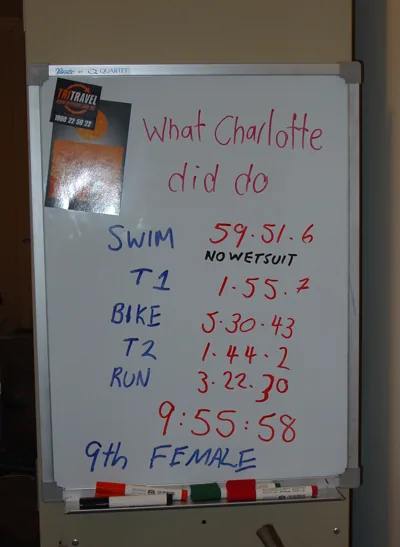 QUARTET
TRITRAVEL
1900 22 50 22
What Charlotte
did do
SWIM 59.51.6
NO WETSUIT
T1 1.55.7
BIKE 5.30.43
T2 1.44.2
RUN 3.22.30
9:55:58
9th FEMALE